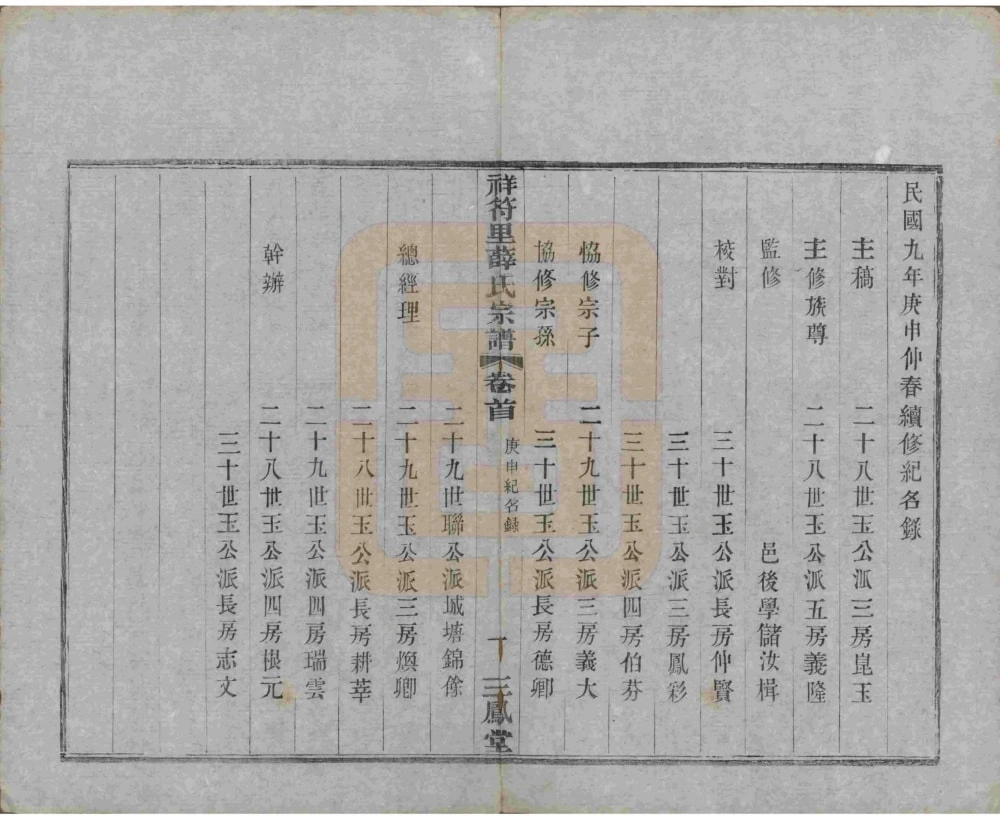 民國九年庚申仲春續修紀名錄
主稿 二十八世玉公派三房崑玉
主修族尊 二十八世玉公派五房義隆
監修 邑後學儲汝楫
校對 三十世玉公派長房仲賢
三十世玉公派三房鳳彩
三十世玉公派四房伯芬
恊修宗子 二十九世玉公派三房義大
協修宗孫 三十世玉公派長房德卿
祥符里薛氏宗譜 卷首 庚申紀名錄 三鳳堂
二十九世聯公派城塘錦餘
總經理 二十九世玉公派三房煥卿
二十八世玉公派長房耕莘
二十九世玉公派四房瑞雲
幹辦 二十八世玉公派四房根元
三十世玉公派長房志文